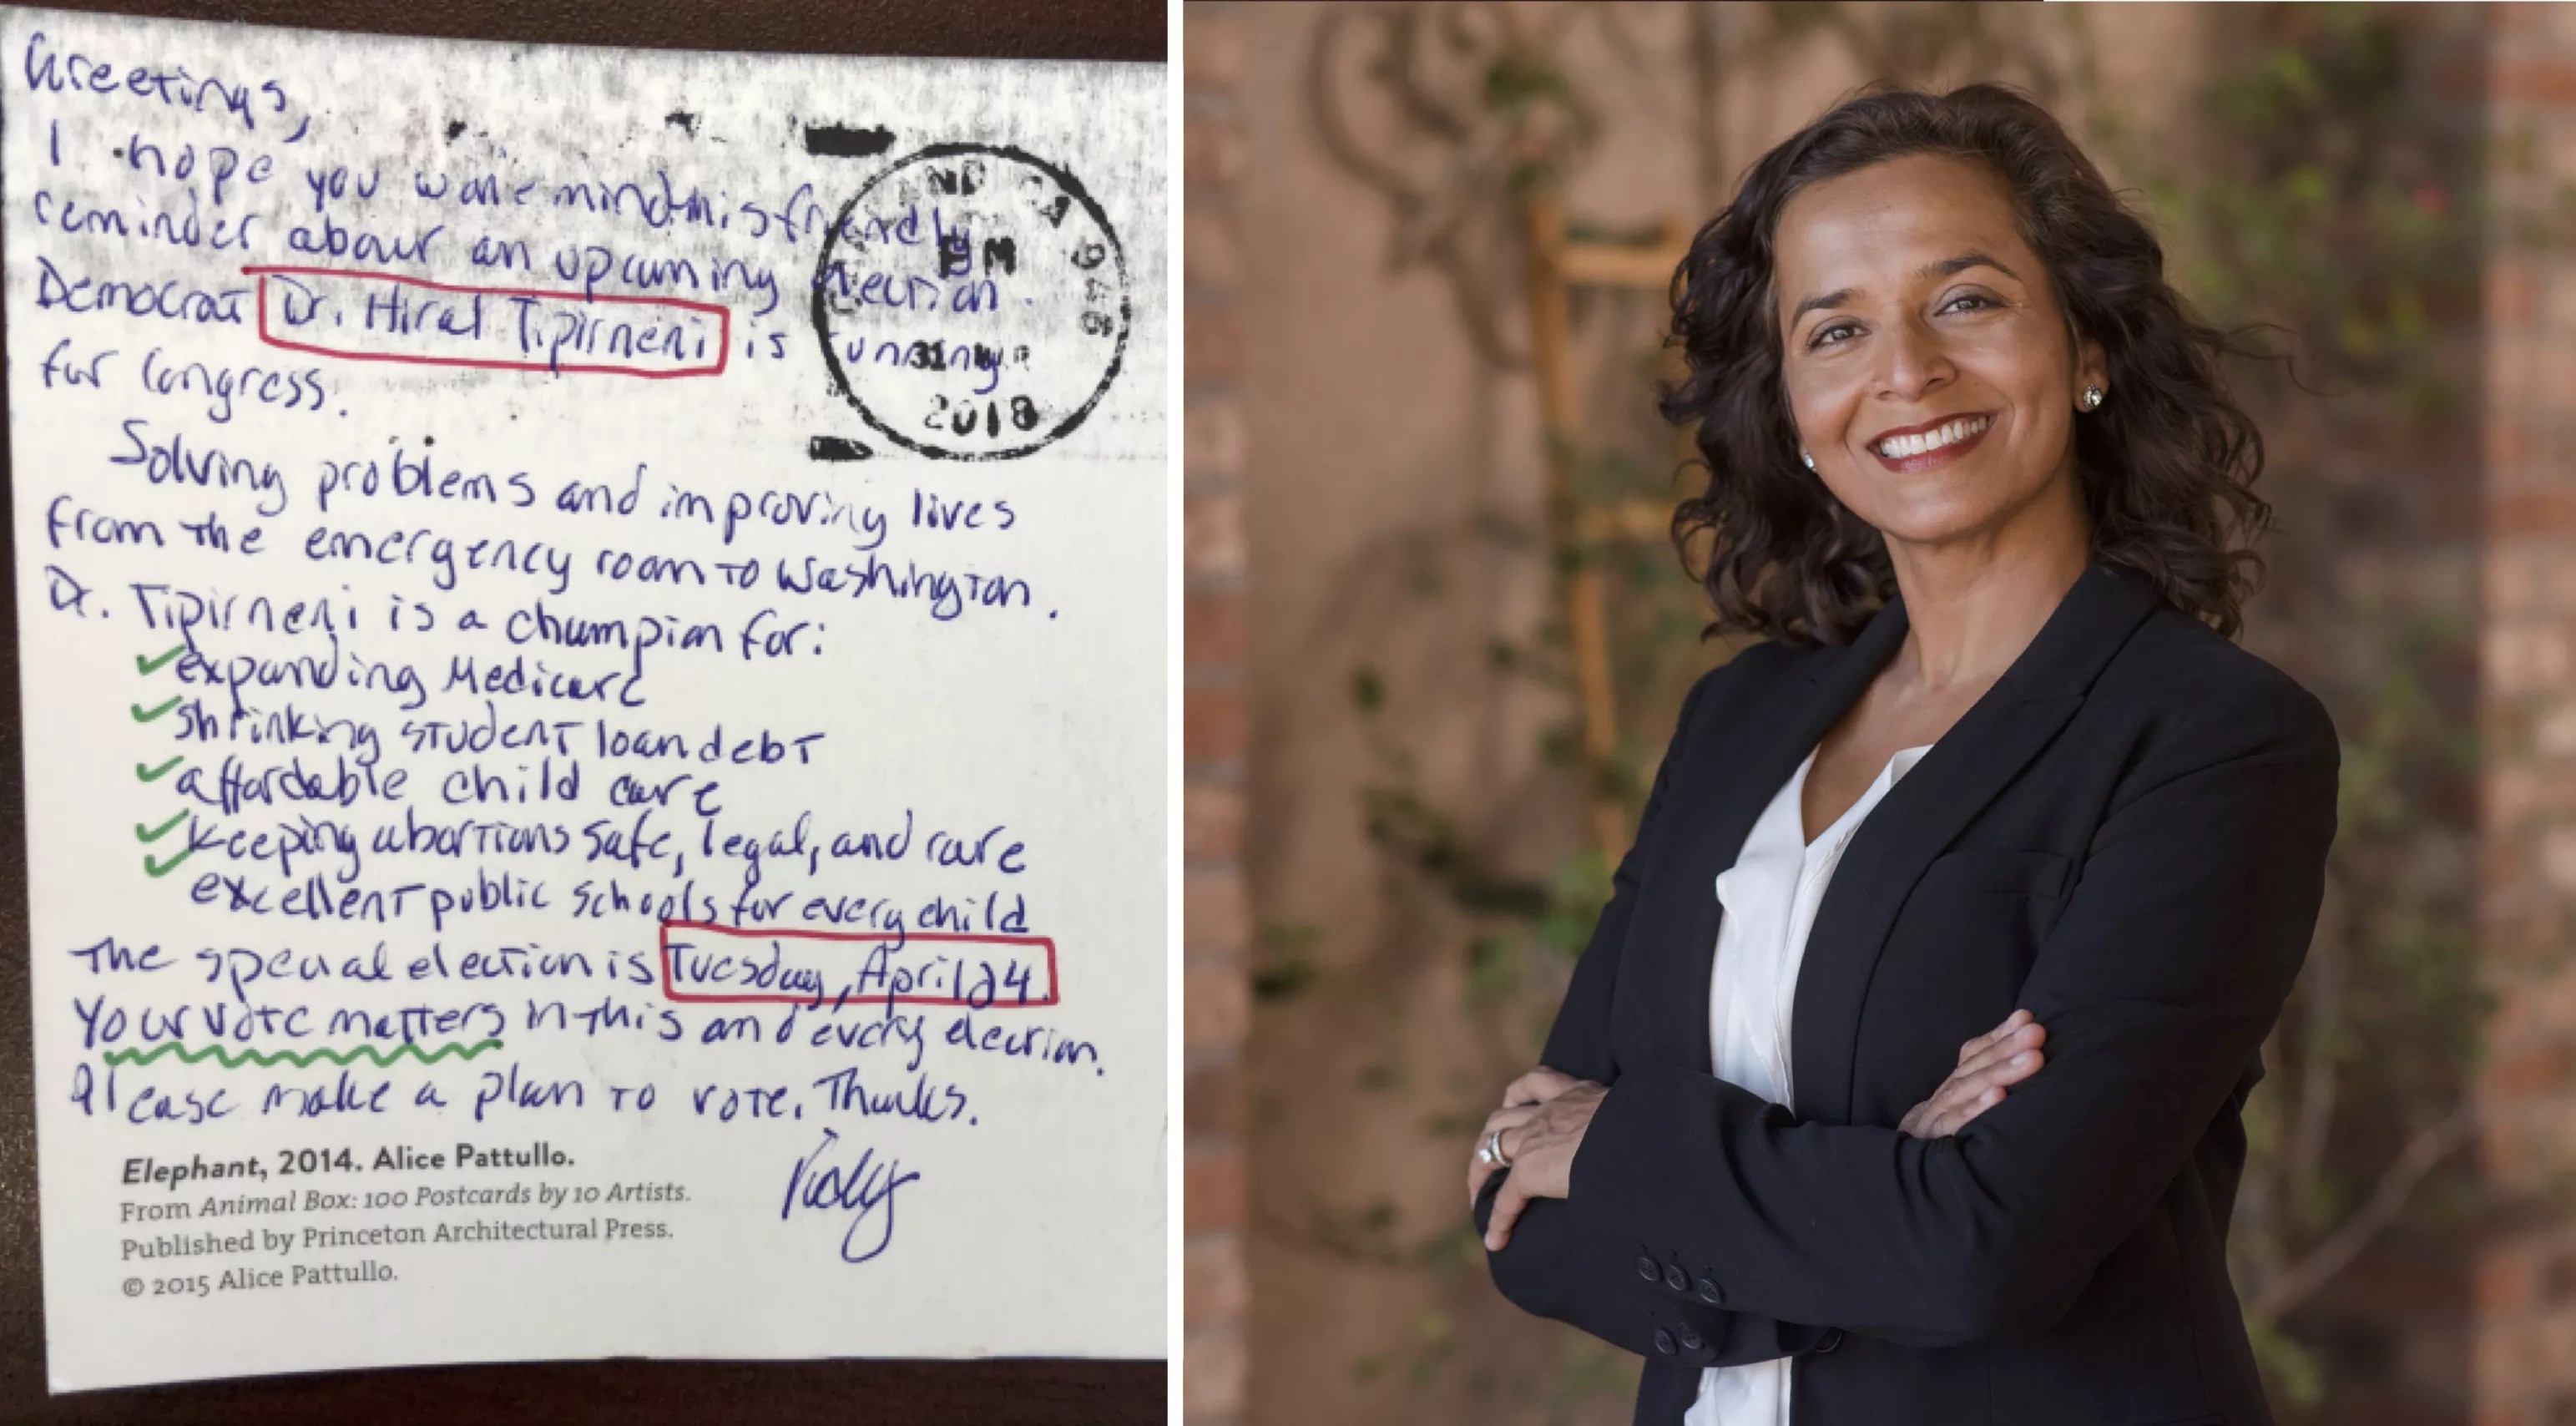 Greetings,
I hope you won't mind this friendly
reminder about an upcoming election.
Democrat Dr. Hiral Tipirneni is running
for Congress.
Solving problems and improving lives
from the emergency room to Washington.
Dr. Tipirneni is a champion for:
✓expanding Medicare
✓shrinking student loan debt
✓affordable child care
✓keeping abortions safe, legal, and rare
✓excellent public schools for every child
The special election is Tuesday, April 24.
Your vote matters in this and every election.
Please make a plan to vote. Thanks.
Elephant, 2014. Alice Pattullo.
From Animal Box: 100 Postcards by 10 Artists.
Published by Princeton Architectural Press.
© 2015 Alice Pattullo.
CA 946
PM
31
2018